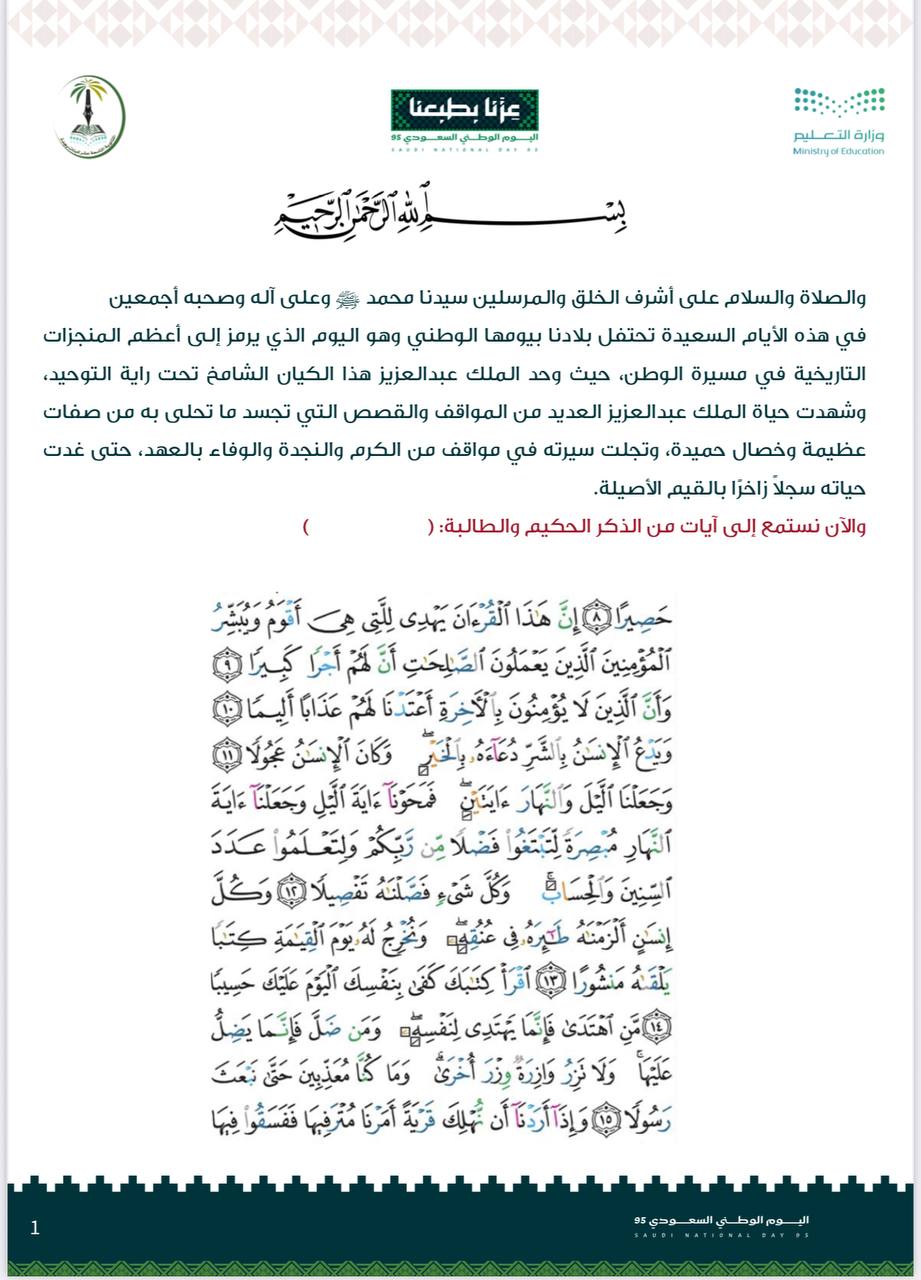 عزّنا بطبعنا
اليـــوم الوطــني السعـــودي 95
SAUDI NATIONAL DAY 95
وزارة التـعـلـيم
Ministry of Education
بِسْمِ اللَّهِ الرَّحْمَٰنِ الرَّحِيمِ
والصلاة والسلام على أشرف الخلق والمرسلين سيدنا محمد ﷺ وعلى آله وصحبه أجمعين
في هذه الأيام السعيدة تحتفل بلادنا بيومها الوطني وهو اليوم الذي يرمز إلى أعظم المنجزات
التاريخية في مسيرة الوطن، حيث وحد الملك عبدالعزيز هذا الكيان الشامخ تحت راية التوحيد،
وشهدت حياة الملك عبدالعزيز العديد من المواقف والقصص التي تجسد ما تحلى به من صفات
عظيمة وخصال حميدة، وتجلت سيرته في مواقف من الكرم والنجدة والوفاء بالعهد، حتى غدت
حياته سجلاً زاخرًا بالقيم الأصيلة.
والآن نستمع إلى آيات من الذكر الحكيم والطالبة: ( )
حَصِيرًا ٨ إِنَّ هَٰذَا الْقُرْءَانَ يَهْدِى لِلَّتِى هِىَ أَقْوَمُ وَيُبَشِّرُ
الْمُؤْمِنِينَ الَّذِينَ يَعْمَلُونَ الصَّٰلِحَٰتِ أَنَّ لَهُمْ أَجْرًا كَبِيرًا ٩
وَأَنَّ الَّذِينَ لَا يُؤْمِنُونَ بِالْأَخِرَةِ أَعْتَدْنَا لَهُمْ عَذَابًا أَلِيمًا ١٠
وَيَدْعُ الْإِنسَٰنُ بِالشَّرِّ دُعَآءَهُۥ بِالْخَيْرِ ۖ وَكَانَ الْإِنسَٰنُ عَجُولًا ١١
وَجَعَلْنَا الَّيْلَ وَالنَّهَارَ ءَايَتَيْنِ ۖ فَمَحَوْنَآ ءَايَةَ الَّيْلِ وَجَعَلْنَآ ءَايَةَ
النَّهَارِ مُبْصِرَةً لِّتَبْتَغُوا۟ فَضْلًا مِّن رَّبِّكُمْ وَلِتَعْلَمُوا۟ عَدَدَ
السِّنِينَ وَالْحِسَابَ ۚ وَكُلَّ شَىْءٍ فَصَّلْنَٰهُ تَفْصِيلًا ١٢ وَكُلَّ
إِنسَٰنٍ أَلْزَمْنَٰهُ طَٰٓئِرَهُۥ فِى عُنُقِهِۦ ۖ وَنُخْرِجُ لَهُۥ يَوْمَ الْقِيَٰمَةِ كِتَٰبًا
يَلْقَىٰهُ مَنشُورًا ١٣ اقْرَأْ كِتَٰبَكَ كَفَىٰ بِنَفْسِكَ الْيَوْمَ عَلَيْكَ حَسِيبًا
١٤ مَّنِ اهْتَدَىٰ فَإِنَّمَا يَهْتَدِى لِنَفْسِهِۦ ۖ وَمَن ضَلَّ فَإِنَّمَا يَضِلُّ
عَلَيْهَا ۚ وَلَا تَزِرُ وَازِرَةٌ وِزْرَ أُخْرَىٰ ۗ وَمَا كُنَّا مُعَذِّبِينَ حَتَّىٰ نَبْعَثَ
رَسُولًا ١٥ وَإِذَآ أَرَدْنَآ أَن نُّهْلِكَ قَرْيَةً أَمَرْنَا مُتْرَفِيهَا فَفَسَقُوا۟ فِيهَا
اليـــوم الوطــني السعـــودي 95
SAUDI NATIONAL DAY 95
1